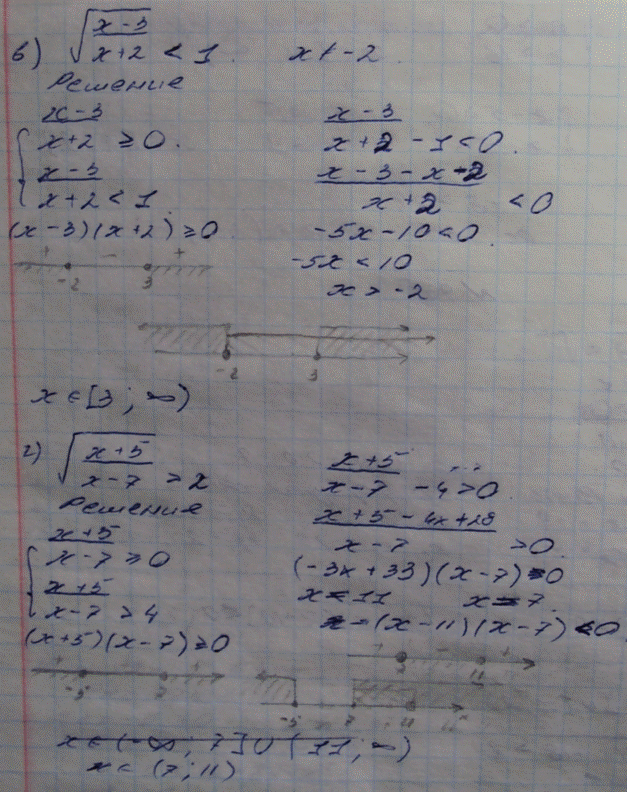 в) √(x-3)/(x+2) < 1. x ≠ -2.
Решение
{ (x-3)/(x+2) ≥ 0.
(x-3)/(x+2) < 1.
(x-3)(x+2) ≥ 0
+ - +
-2 3
(x-3)/(x+2) - 1 < 0.
(x-3-x-2)/(x+2) < 0
-5x-10 < 0.
-5x < 10
x > -2
-2 3
x ∈ [3; ∞)
г) √(x+5)/(x-7) > 2
Решение
{ (x+5)/(x-7) ≥ 0
(x+5)/(x-7) > 4
(x+5)(x-7) ≥ 0
+ - +
-5 7
(x+5)/(x-7) - 4 > 0.
(x+5-4x+28)/(x-7) > 0.
(-3x+33)(x-7) = 0
x = 11 x = 7.
(x-11)(x-7) < 0
+ - +
7 11
-5 7 11
x ∈ (-∞; 7] ∪ [11; ∞)
x ∈ (7; 11)